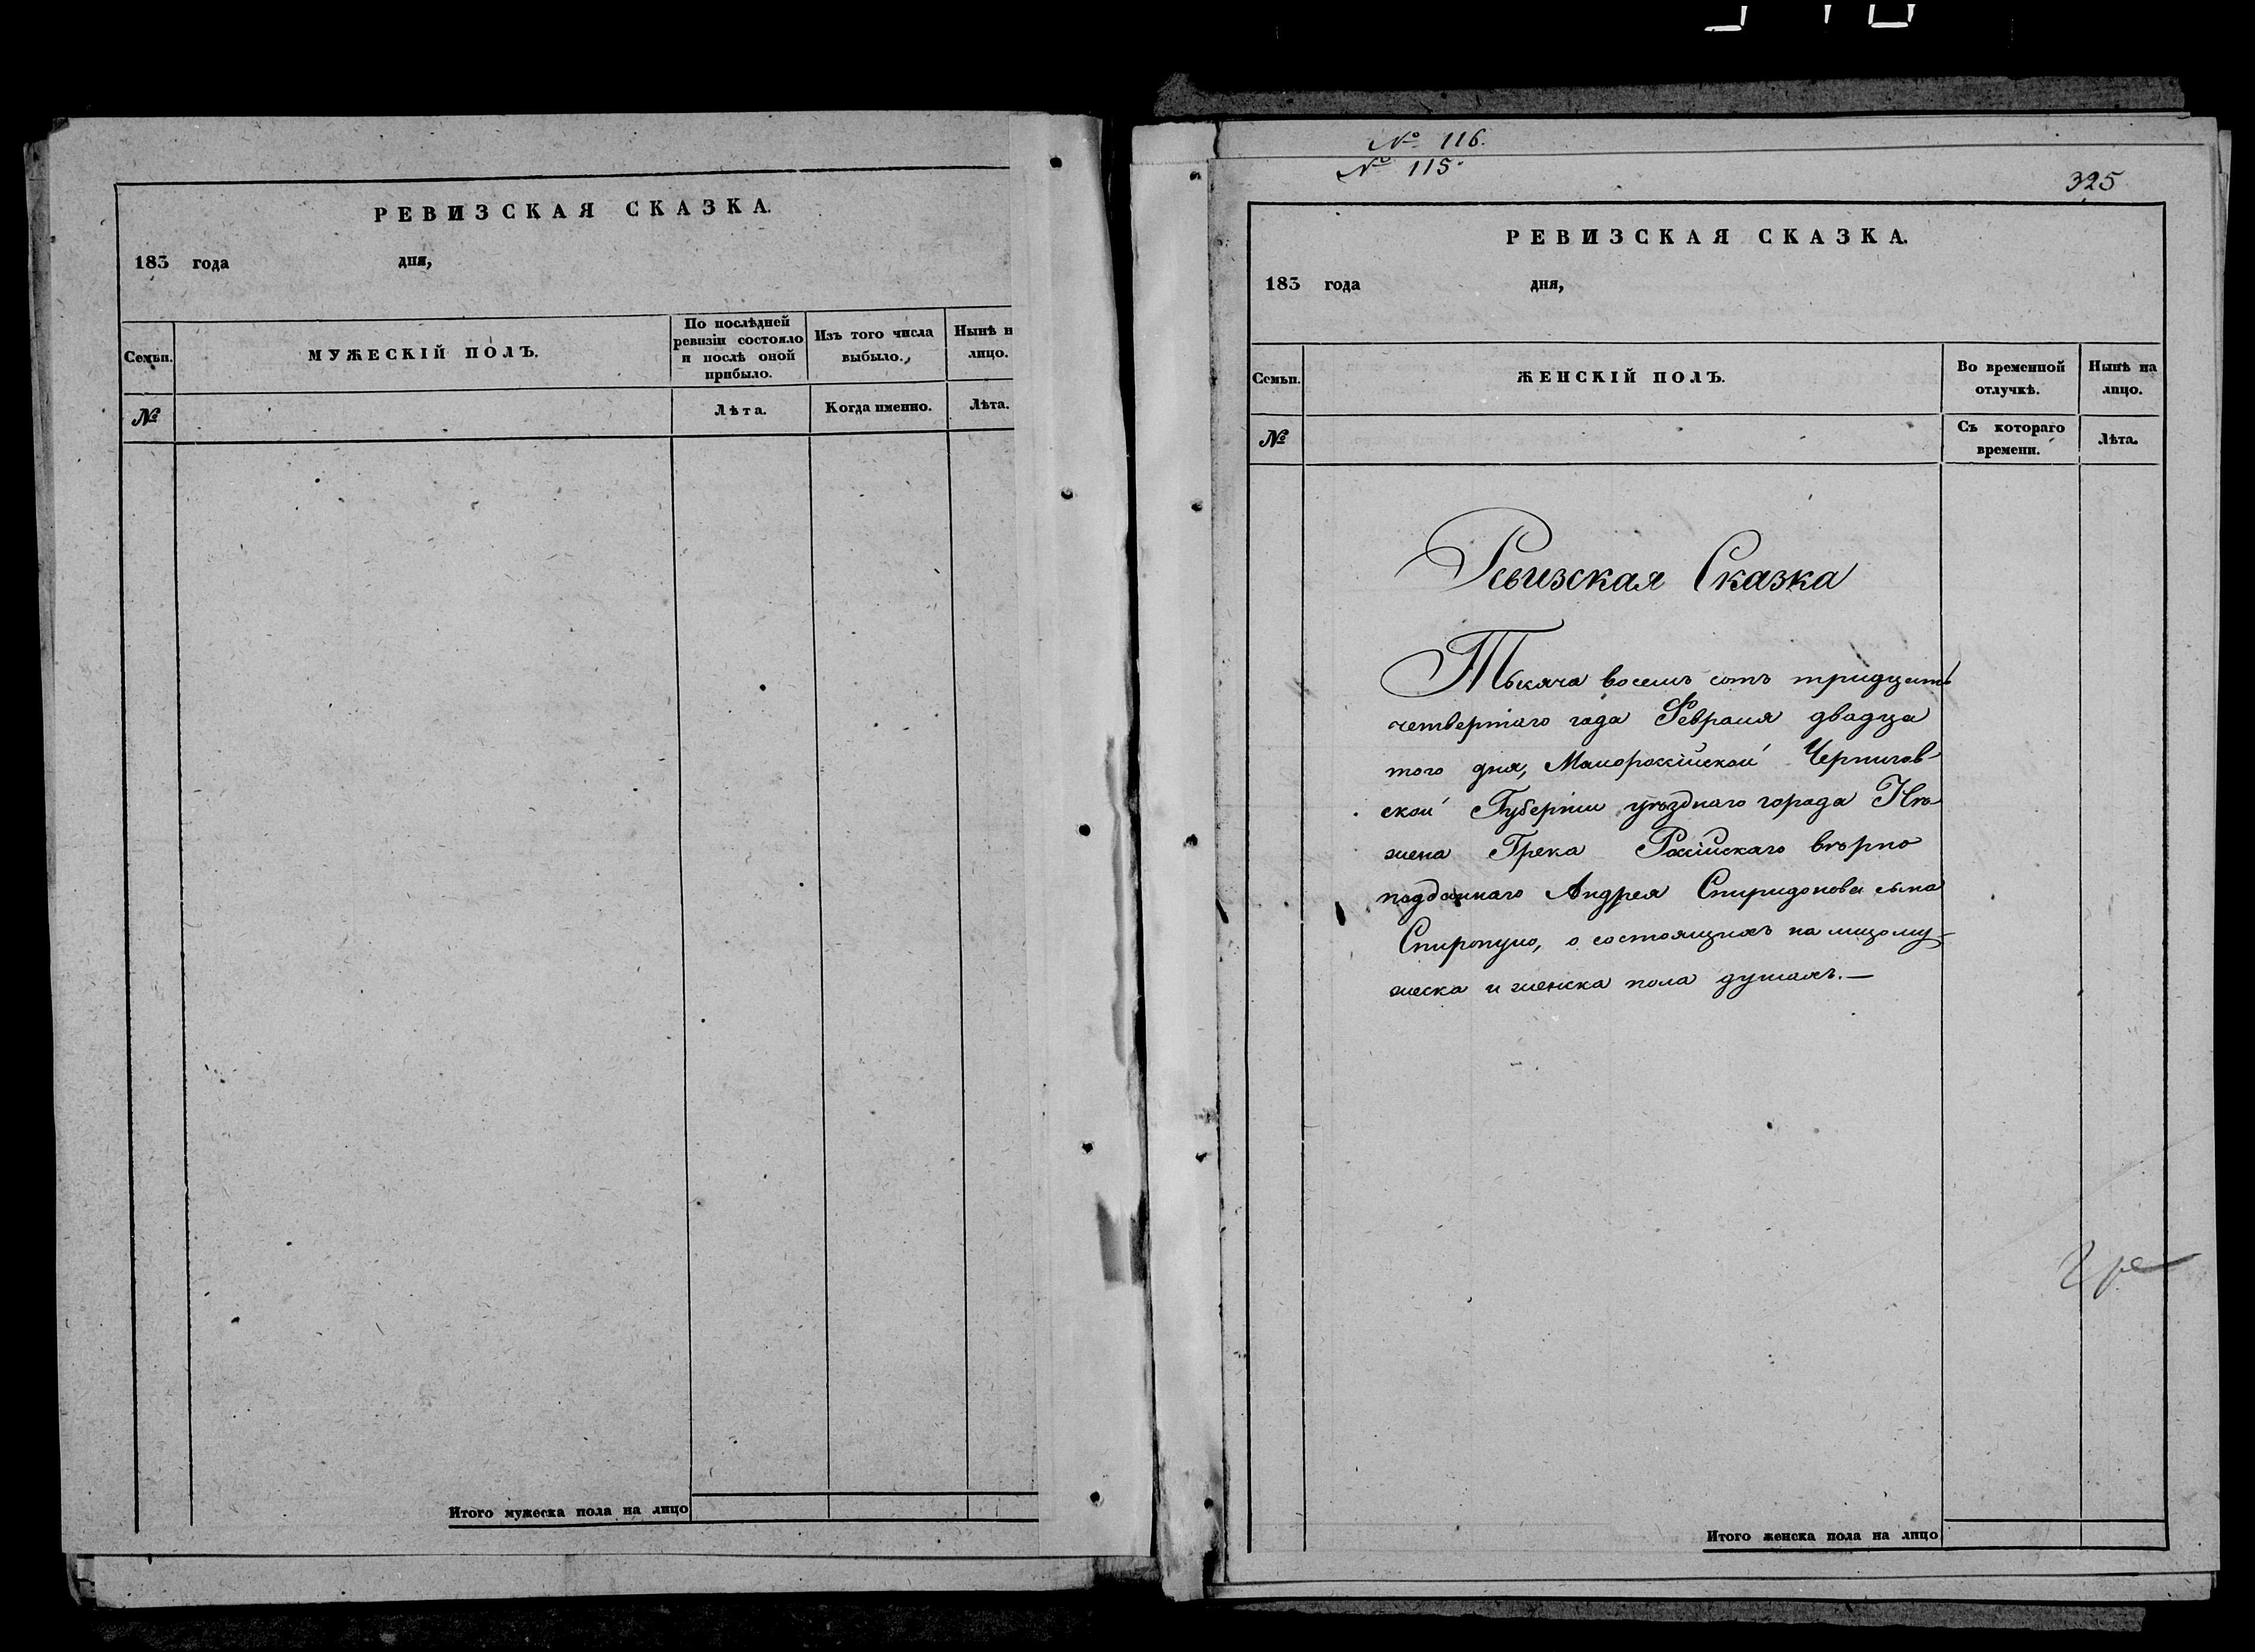 РЕВИЗСКАЯ СКАЗКА.
183 года дня,
Семьи.
МУЖЕСКІЙ ПОЛЪ.
По послѣдней
ревизіи состояло
и послѣ оной
прибыло.
Изъ того числа
выбыло.
Нынѣ н
лицо.
№
Лѣта.
Когда именно.
Лѣта.
Итого мужеска пола на лицо
№ 116.
№ 115.
325
РЕВИЗСКАЯ СКАЗКА.
183 года дня,
Семьи.
ЖЕНСКІЙ ПОЛЪ.
Во временной
отлучкѣ.
Нынѣ на
лицо.
№
Съ котораго
времени.
Лѣта.
Ревизская Сказка
Тысяча восемь сотъ тридцать
четвертаго года Февраля двадца
того дня, Малороссійской Чернигов-
ской Губерніи уѣзднаго города Нѣ
жена Грека Россійскаго вѣрно
подданнаго Андрея Спиридонова сына
Спиропуло, о состоящихъ на лицо му-
жеска и женска пола душахъ.—
Итого женска пола на лицо